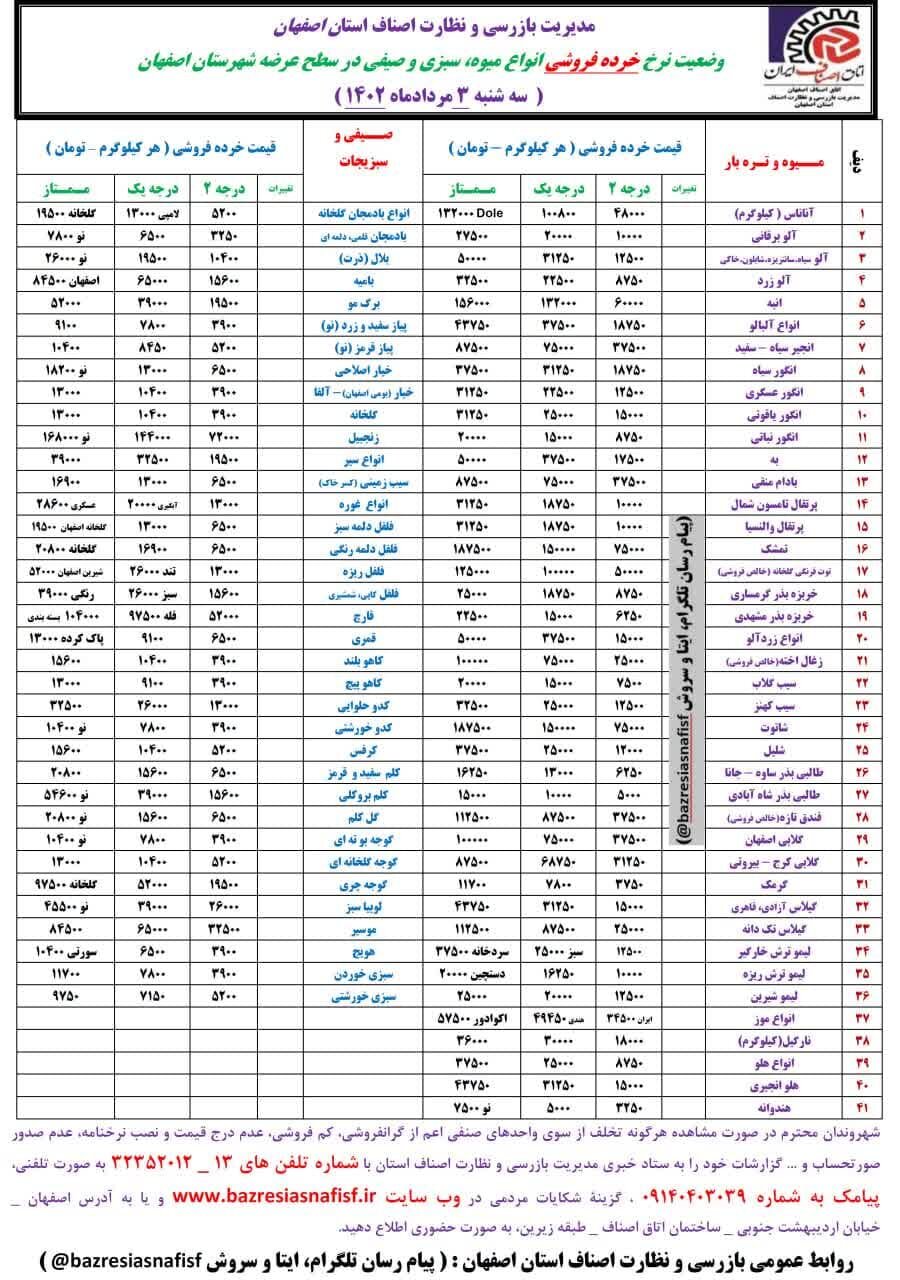 مدیریت بازرسی و نظارت اصناف استان اصفهان
وضعیت نرخ خرده فروشی انواع میوه، سبزی و صیفی در سطح عرضه شهرستان اصفهان
( سه شنبه ۳ مردادماه ۱۴۰۲ )
اتاق اصناف ایران
اتاق اصناف اصفهان
مدیریت بازرسی و نظارت اصناف
استان اصفهان
ردیف میوه و تره بار قیمت خرده فروشی ( هر کیلوگرم – تومان ) صیفی و سبزیجات قیمت خرده فروشی ( هر کیلوگرم – تومان )
تغییرات درجه ۲ درجه یک ممتاز تغییرات درجه ۲ درجه یک ممتاز
۱ آناناس ( کیلوگرم) ۴۸۰۰۰ ۱۰۰۸۰۰ ۱۳۲۰۰۰ Dole انواع بادمجان گلخانه ۵۲۰۰ لامپی ۱۳۰۰۰ گلخانه ۱۹۵۰۰
۲ آلو برقانی ۱۰۰۰۰ ۲۰۰۰۰ ۲۷۵۰۰ بادمجان قلمی، دلمه ای ۳۲۵۰ ۶۵۰۰ نو ۷۸۰۰
۳ آلو سیاه، سانتریزه، شابلون، خاکی ۱۲۵۰۰ ۳۱۲۵۰ ۵۰۰۰۰ بلال (ذرت) ۱۰۴۰۰ ۱۹۵۰۰ نو ۲۶۰۰۰
۴ آلو زرد ۸۷۵۰ ۲۲۵۰۰ ۳۲۵۰۰ بامیه ۱۵۶۰۰ ۶۵۰۰۰ اصفهان ۸۴۵۰۰
۵ انبه ۶۰۰۰۰ ۱۳۲۰۰۰ ۱۵۶۰۰۰ برگ مو ۱۹۵۰۰ ۳۹۰۰۰ ۵۲۰۰۰
۶ انواع آلبالو ۱۸۷۵۰ ۳۷۵۰۰ ۴۳۷۵۰ پیاز سفید و زرد (نو) ۳۹۰۰ ۷۸۰۰ ۹۱۰۰
۷ انجیر سیاه – سفید ۳۷۵۰۰ ۷۵۰۰۰ ۸۷۵۰۰ پیاز قرمز (نو) ۵۲۰۰ ۸۴۵۰ ۱۰۴۰۰
۸ انگور سیاه ۱۸۷۵۰ ۳۱۲۵۰ ۳۷۵۰۰ خیار اصلاحی ۶۵۰۰ ۱۳۰۰۰ نو ۱۸۲۰۰
۹ انگور عسکری ۱۲۵۰۰ ۲۲۵۰۰ ۳۱۲۵۰ خیار (بومی اصفهان) – آلفا ۳۹۰۰ ۱۰۴۰۰ ۱۳۰۰۰
۱۰ انگور یاقوتی ۱۵۰۰۰ ۲۵۰۰۰ ۳۱۲۵۰ گلخانه ۳۹۰۰ ۱۰۴۰۰ ۱۳۰۰۰
۱۱ انگور نباتی ۸۷۵۰ ۱۵۰۰۰ ۲۰۰۰۰ زنجبیل ۷۲۰۰۰ ۱۴۴۰۰۰ نو ۱۶۸۰۰۰
۱۲ به ۱۷۵۰۰ ۳۷۵۰۰ ۵۰۰۰۰ انواع سیر ۱۹۵۰۰ ۳۲۵۰۰ ۳۹۰۰۰
۱۳ بادام منقی ۳۷۵۰۰ ۷۵۰۰۰ ۸۷۵۰۰ سیب زمینی (کسر خاک) ۶۵۰۰ ۱۳۰۰۰ ۱۶۹۰۰
۱۴ پرتقال تامسون شمال ۱۰۰۰۰ ۱۸۷۵۰ ۳۱۲۵۰ انواع غوره ۱۳۰۰۰ آبگیری ۲۰۰۰۰ عسکری ۲۸۶۰۰
۱۵ پرتقال والنسیا ۱۰۰۰۰ ۱۸۷۵۰ ۳۱۲۵۰ فلفل دلمه سبز ۶۵۰۰ ۱۳۰۰۰ گلخانه اصفهان ۱۹۵۰۰
۱۶ تمشک ۷۵۰۰۰ ۱۵۰۰۰۰ ۱۸۷۵۰۰ فلفل دلمه رنگی ۶۵۰۰ ۱۶۹۰۰ گلخانه ۲۰۸۰۰
۱۷ توت فرنگی گلخانه (خالص فروشی) ۵۰۰۰۰ ۱۰۰۰۰۰ ۱۲۵۰۰۰ فلفل ریزه ۱۳۰۰۰ تند ۲۶۰۰۰ شیرین اصفهان ۵۲۰۰۰
۱۸ خربزه بذر گرمساری ۸۷۵۰ ۱۸۷۵۰ ۲۵۰۰۰ فلفل کاپی، شمشیری ۱۵۶۰۰ سبز ۲۶۰۰۰ رنگی ۳۹۰۰۰
۱۹ خربزه بذر مشهدی ۶۲۵۰ ۱۵۰۰۰ ۲۲۵۰۰ قارچ ۵۲۰۰۰ فله ۹۷۵۰۰ ۱۰۴۰۰۰ بسته بندی
۲۰ انواع زردآلو ۱۵۰۰۰ ۳۷۵۰۰ ۵۰۰۰۰ قمری ۶۵۰۰ ۹۱۰۰ پاک کرده ۱۳۰۰۰
۲۱ زغال اخته(خالص فروشی) ۲۵۰۰۰ ۷۵۰۰۰ ۱۰۰۰۰۰ کاهو بلند ۳۹۰۰ ۱۰۴۰۰ ۱۵۶۰۰
۲۲ سیب گلاب ۷۵۰۰ ۱۵۰۰۰ ۲۰۰۰۰ کاهو پیچ ۳۹۰۰ ۹۱۰۰ ۱۳۰۰۰
۲۳ سیب کهنز ۱۲۵۰۰ ۲۵۰۰۰ ۳۲۵۰۰ کدو حلوایی ۱۳۰۰۰ ۲۶۰۰۰ ۳۲۵۰۰
۲۴ شاتوت ۷۵۰۰۰ ۱۵۰۰۰۰ ۱۸۷۵۰۰ کدو خورشتی ۳۹۰۰ ۷۸۰۰ نو ۱۰۴۰۰
۲۵ شلیل ۱۲۰۰۰ ۲۵۰۰۰ ۳۷۵۰۰ کرفس ۵۲۰۰ ۱۰۴۰۰ ۱۵۶۰۰
۲۶ طالبی بذر ساوه – جانا ۶۲۵۰ ۱۳۰۰۰ ۱۶۲۵۰ کلم سفید و قرمز ۶۵۰۰ ۱۵۶۰۰ ۲۰۸۰۰
۲۷ طالبی بذر شاه آبادی ۵۰۰۰ ۱۰۰۰۰ ۱۵۰۰۰ کلم بروکلی ۱۵۶۰۰ ۳۹۰۰۰ نو ۵۴۶۰۰
۲۸ فندق تازه(خالص فروشی) ۳۷۵۰۰ ۸۷۵۰۰ ۱۱۲۵۰۰ گل کلم ۶۵۰۰ ۱۵۶۰۰ نو ۲۰۸۰۰
۲۹ گلابی اصفهان ۳۷۵۰۰ ۷۵۰۰۰ ۱۰۰۰۰۰ گوجه بوته ای ۳۹۰۰ ۷۸۰۰ نو ۱۰۴۰۰
۳۰ گلابی کرج – بیروتی ۳۱۲۵۰ ۶۸۷۵۰ ۸۷۵۰۰ گوجه گلخانه ای ۵۲۰۰ ۱۰۴۰۰ ۱۳۰۰۰
۳۱ گرمک ۳۷۵۰ ۷۸۰۰ ۱۱۷۰۰ گوجه چری ۱۹۵۰۰ ۵۲۰۰۰ گلخانه ۹۷۵۰۰
۳۲ گیلاس آزادی، قاهری ۱۵۰۰۰ ۳۱۲۵۰ ۴۳۷۵۰ لوبیا سبز ۲۶۰۰۰ ۳۹۰۰۰ نو ۴۵۵۰۰
۳۳ گیلاس تک دانه ۲۵۰۰۰ ۸۷۵۰۰ ۱۱۲۵۰۰ موسیر ۳۲۵۰۰ ۶۵۰۰۰ ۸۴۵۰۰
۳۴ لیمو ترش خارگیر ۱۲۵۰۰ سبز ۲۵۰۰۰ سردخانه ۳۷۵۰۰ هویج ۳۹۰۰ ۶۵۰۰ سورتی ۱۰۴۰۰
۳۵ لیمو ترش ریزه ۱۰۰۰۰ ۱۶۲۵۰ دستچین ۲۰۰۰۰ سبزی خوردن ۳۹۰۰ ۷۸۰۰ ۱۱۷۰۰
۳۶ لیمو شیرین ۱۲۵۰۰ ۲۰۰۰۰ ۲۵۰۰۰ سبزی خورشتی ۵۲۰۰ ۷۱۵۰ ۹۷۵۰
۳۷ انواع موز ایران ۳۴۵۰۰ هندی ۴۹۴۵۰ اکوادور ۵۷۵۰۰
۳۸ نارگیل(کیلوگرم) ۱۸۰۰۰ ۳۰۰۰۰ ۳۶۰۰۰
۳۹ انواع هلو ۸۷۵۰ ۲۵۰۰۰ ۳۷۵۰۰
۴۰ هلو انجیری ۱۵۰۰۰ ۳۱۲۵۰ ۴۳۷۵۰
۴۱ هندوانه ۳۲۵۰ ۵۰۰۰ نو ۷۵۰۰
(پیام رسان تلگرام، ایتا و سروش bazresiasnafisf@)
شهروندان محترم در صورت مشاهده هرگونه تخلف از سوی واحدهای صنفی اعم از گرانفروشی، کم فروشی، عدم درج قیمت و نصب نرخنامه، عدم صدور
صورتحساب و ... گزارشات خود را به ستاد خبری مدیریت بازرسی و نظارت اصناف استان با شماره تلفن های ۱۳ _ ۳۲۳۵۲۰۱۲ به صورت تلفنی،
پیامک به شماره ۰۹۱۴۰۴۰۳۰۳۹ ، گزینهٔ شکایات مردمی در وب سایت www.bazresiasnafisf.ir و یا به آدرس اصفهان _
خیابان اردیبهشت جنوبی _ ساختمان اتاق اصناف _ طبقه زیرین، به صورت حضوری اطلاع دهید.
روابط عمومی بازرسی و نظارت اصناف استان اصفهان : ( پیام رسان تلگرام، ایتا و سروش bazresiasnafisf@ )